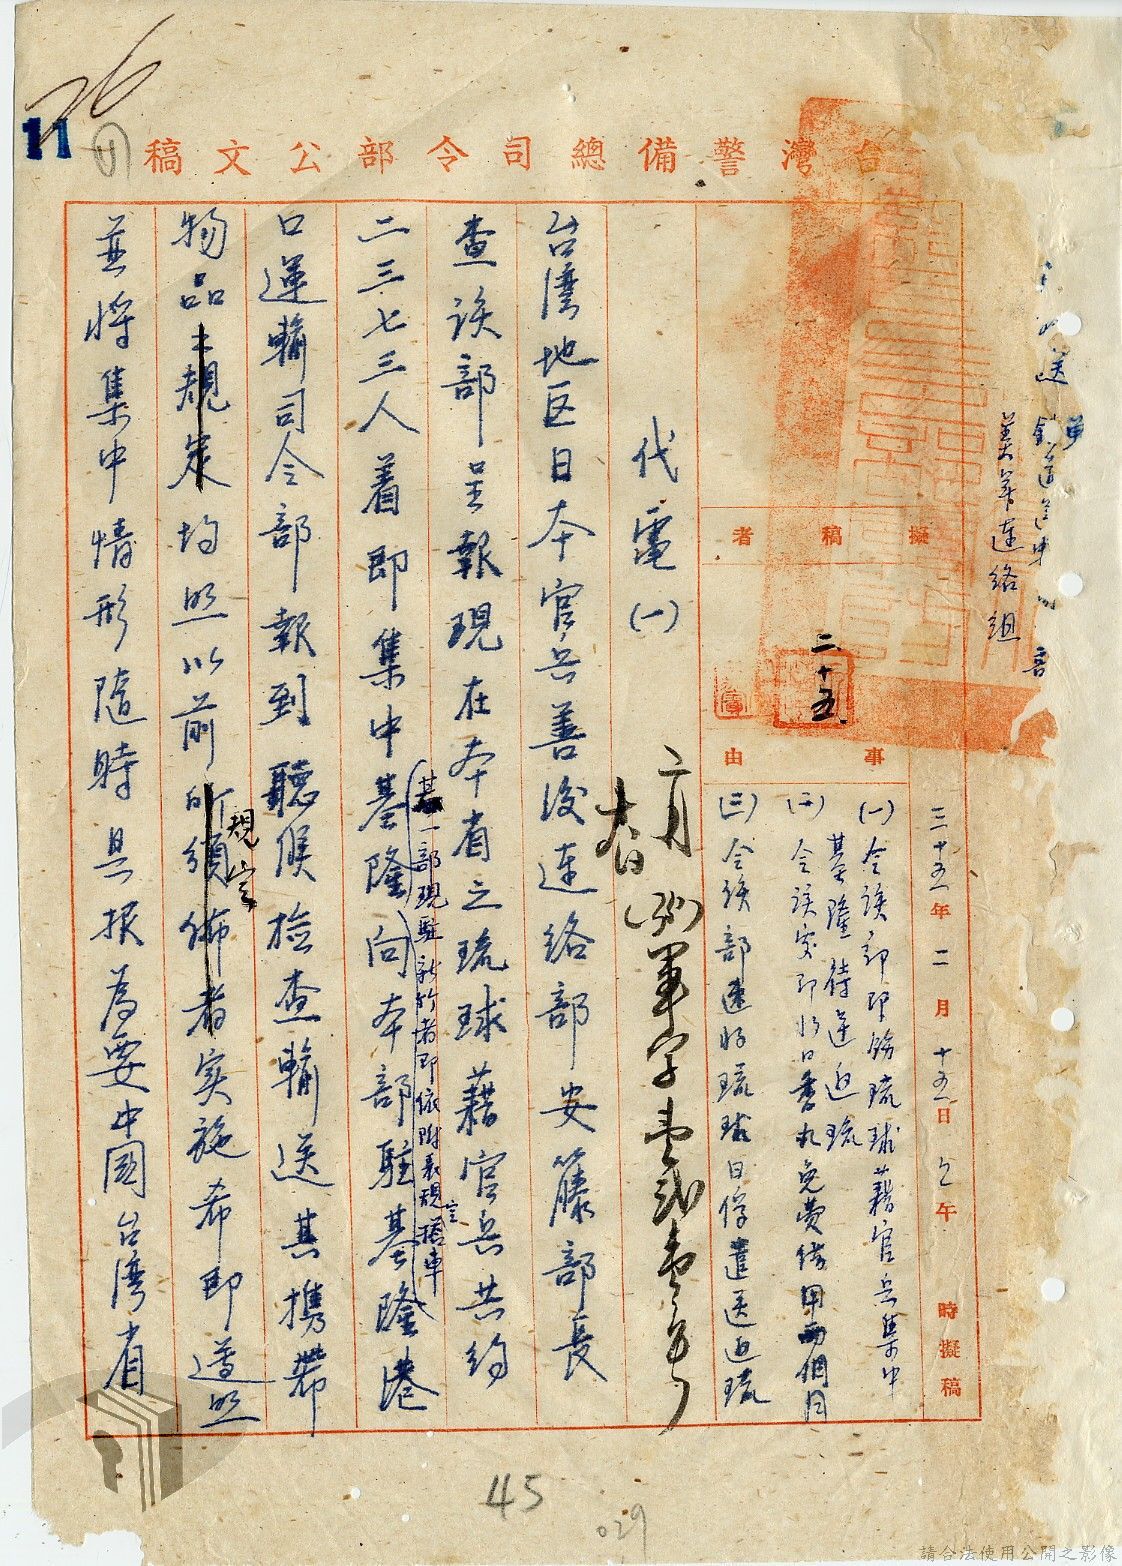 26
11
台灣警備總司令部公文稿
美軍連絡組
擬稿者
二十五
三十五年二月十五日 午 時擬稿
事由
(一)令該部即飭琉球藉官兵集中
基隆待運返琉
(三)令該部速將琉球日俘遣送返琉
代電(一)
二月
台灣地区日本官兵善後連絡部安籐部長
查該部呈報現在本省之琉球藉官兵共約
二三七三人着即集中基隆向本部駐基隆港
(一部現駐新竹者即依附表規定搭車
口運輸司令部報到聽候檢查輸送其携帶
物品之規定均照以前所頒佈者實施希即遵照
規定
並將集中情形隨時具报為要中國台湾省
45
029
請合法使用公開之影像